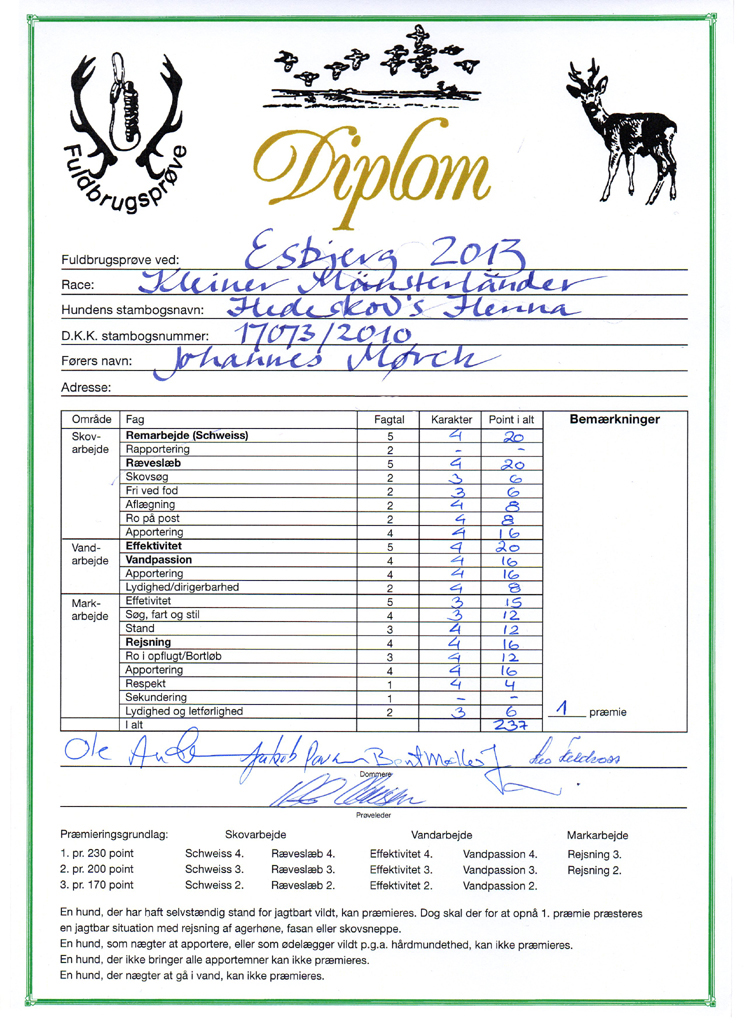 Fuldbrugsprøve
Diplom
Fuldbrugsprøve ved: Esbjerg 2013
Race: Kleiner Münsterländer
Hundens stambogsnavn: Hedeskov's Henna
D.K.K. stambogsnummer: 17073/2010
Førers navn: Johannes Mørch
Adresse:
Område Fag Fagtal Karakter Point i alt Bemærkninger
Skov- Remarbejde (Schweiss) 5 4 20
arbejde Rapportering 2 - -
Ræveslæb 5 4 20
Skovsøg 2 3 6
Fri ved fod 2 3 6
Aflægning 2 4 8
Ro på post 2 4 8
Apportering 4 4 16
Vand- Effektivitet 5 4 20
arbejde Vandpassion 4 4 16
Apportering 4 4 16
Lydighed/dirigerbarhed 2 4 8
Mark- Effetivitet 5 3 15
arbejde Søg, fart og stil 4 3 12
Stand 3 4 12
Rejsning 4 4 16
Ro i opflugt/Bortløb 3 4 12
Apportering 4 4 16
Respekt 1 4 4
Sekundering 1 - -
Lydighed og letførlighed 2 3 6 1 præmie
I alt 237
Ole Jakob Bent Møller
Dommere
Prøveleder
Præmieringsgrundlag: Skovarbejde Vandarbejde Markarbejde
1. pr. 230 point Schweiss 4. Ræveslæb 4. Effektivitet 4. Vandpassion 4. Rejsning 3.
2. pr. 200 point Schweiss 3. Ræveslæb 3. Effektivitet 3. Vandpassion 3. Rejsning 2.
3. pr. 170 point Schweiss 2. Ræveslæb 2. Effektivitet 2. Vandpassion 2.
En hund, der har haft selvstændig stand for jagtbart vildt, kan præmieres. Dog skal der for at opnå 1. præmie præsteres
en jagtbar situation med rejsning af agerhøne, fasan eller skovsneppe.
En hund, som nægter at apportere, eller som ødelægger vildt p.g.a. hårdmundethed, kan ikke præmieres.
En hund, der ikke bringer alle apportemner kan ikke præmieres.
En hund, der nægter at gå i vand, kan ikke præmieres.